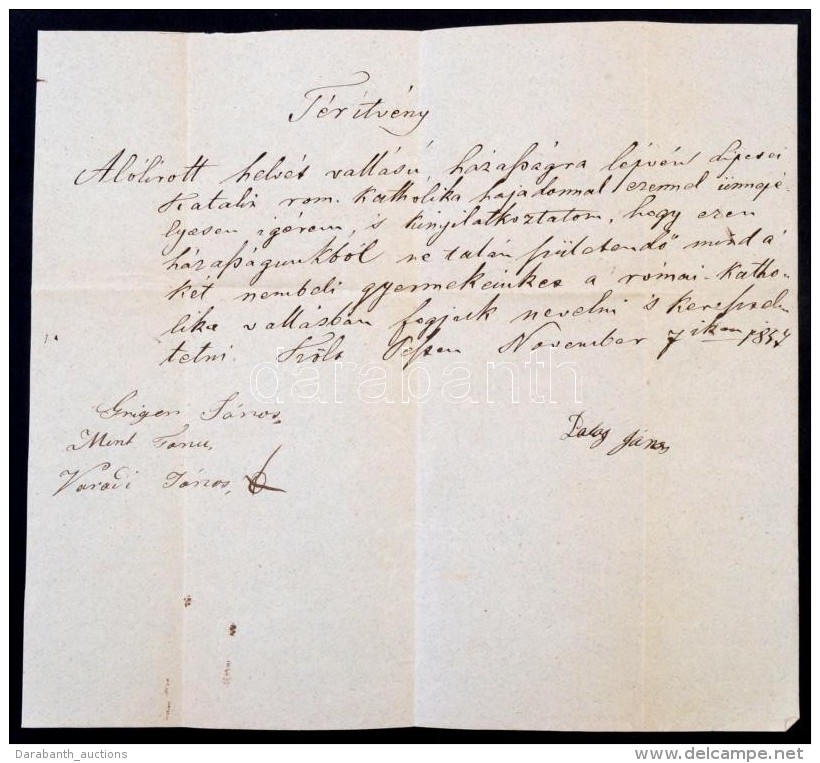 Térítvény
Alólirott helvét vallású, házaſságra lépvén Lipcsei
Katalin rom. Katholika hajadonnal ezennel ünnepé-
lyesen igérem, 's kinyilatkoztatom, hogy ezen
házaſságunkból ne talán ſzületendő mind a'
két nembeli gyermekeinket a római-katho-
lika vallásban fogjuk nevelni 's kereſztel-
tetni. Költ Peſten November 7 ikén 1857
Grigeri János,
Mint Tanu,
Varadi János,
János
darabanth
Darabanth_auctions
delcampe.net